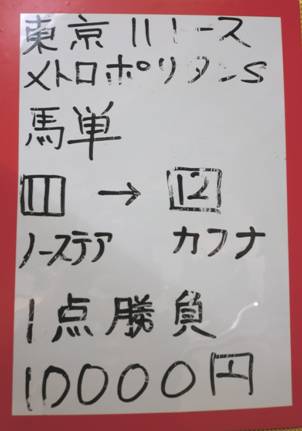 東京11レース
メトロポリタンS
馬単
11 → 12
ノースデア カフナ
1点勝負
10000円